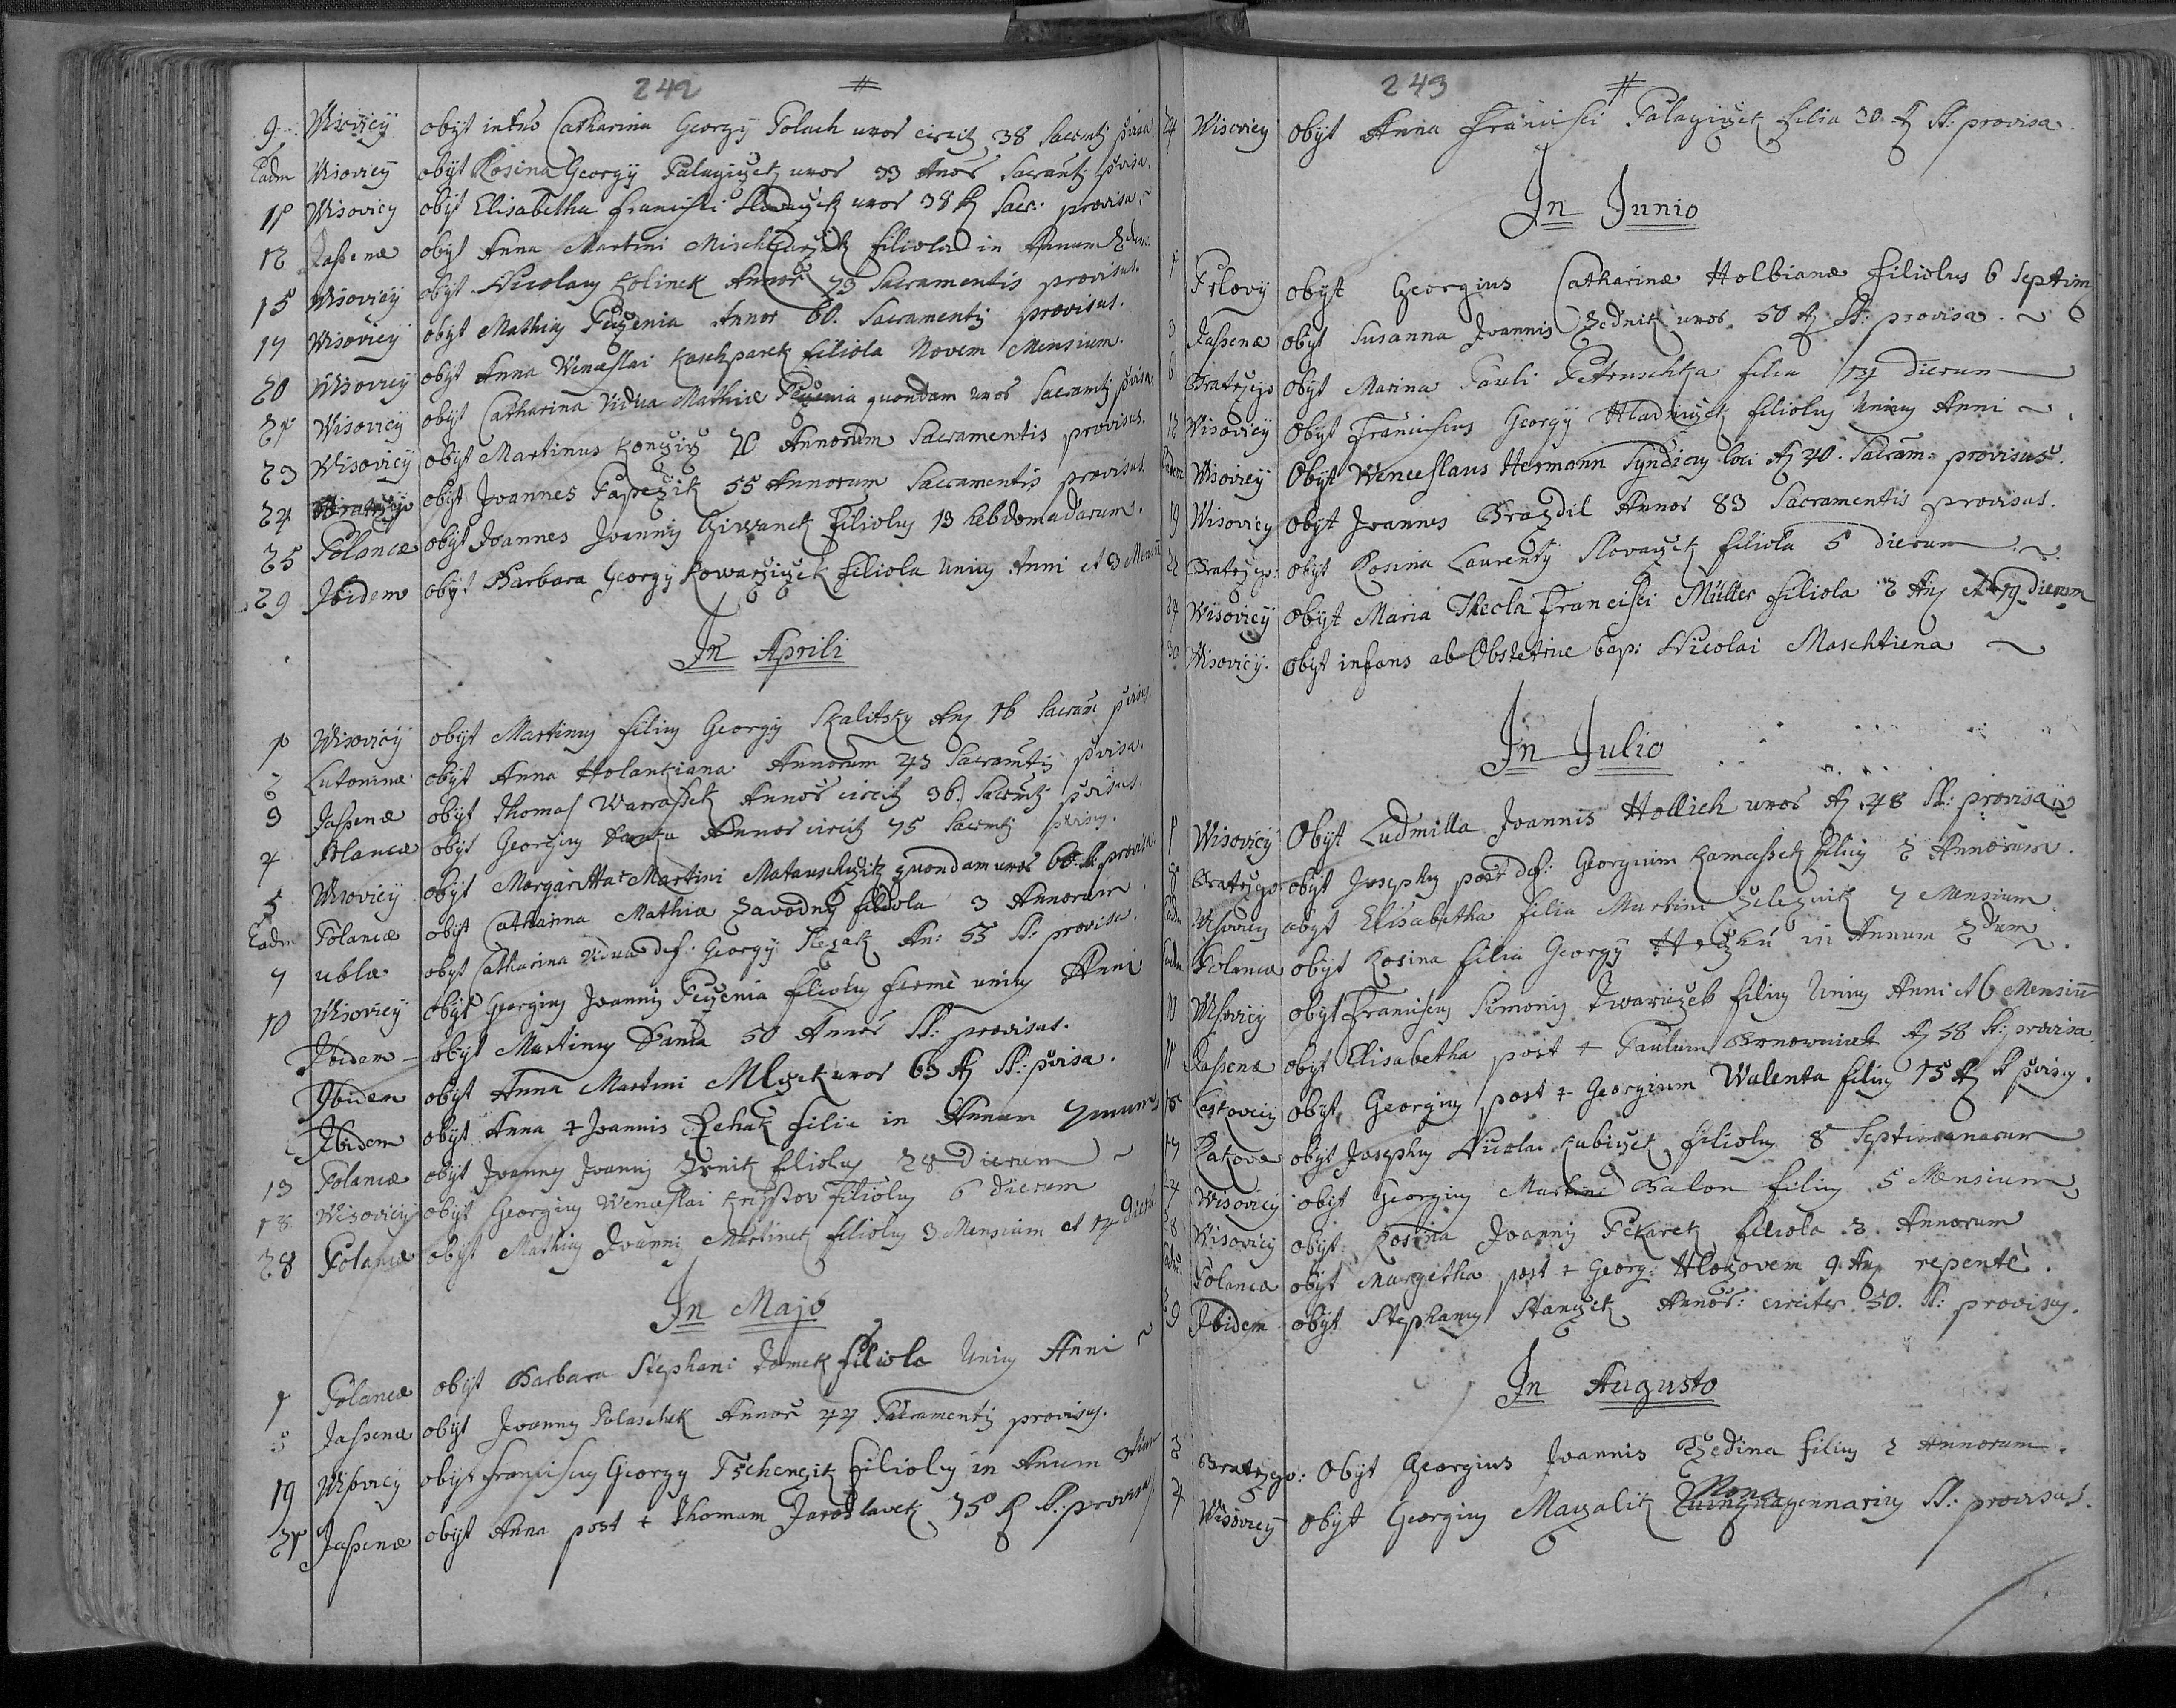 242 #
9 Wisovicÿ obÿt intus Catharina Georgÿ Polach uxor circitÿ 38 Sacrtÿ pvisa
Eadm Wisovicÿ obÿt Rosina Georgÿ Palagiczek uxor 33 Anor Sacramtÿ pvisa.
11 Wisovicÿ obÿt Elisabetha Francisci uxor 38 A Sacr: provisa
12 Jassenæ obÿt Anna Martini filiola in Annum 2dum
15 Wisovicÿ obÿt Nicolaus Kolinek Annor 73 Sacramentis provisus.
17 Wisovicÿ obÿt Mathias Peczenia Annor 60. Sacramentÿ provisus.
20 Wisovicÿ obÿt Anna Wenceslai Kaschparek filiola Novem Mensium.
21 Wisovicÿ obÿt Catharina Vidua Mathiæ Peczenia quondam uxor Sacramtÿ pvisa
23 Wisovicÿ obÿt Martinus Koncziz 70 Annorum Sacramentis provisus.
24 Bratrzejo obÿt Joannes Papezik 55 Annorum Sacramentis provisus.
25 Polancæ obÿt Joannes Joannis filiolus 13 hebdomadarum.
29 Ibidem obÿt Barbara Georgÿ Kowarziczek filiola Unius Anni et 3 Mensiu
In Aprili
1 Wisovicÿ obÿt Martinus filius Georgÿ Skalitskÿ An 16 Sacram pvisus
2 Lutoninæ obÿt Anna Holankiana Annorum 43 Sacramtÿ pvisa.
3 Jassenæ obÿt Thomas Warrassek Annor circitÿ 36. Sacrmtÿ pvisus.
4 Polancæ obÿt Georgius Annor circitÿ 75 Sacrmtÿ pvisus.
5 Wisovicÿ obÿt Margaritta Martini Matauschczik quondam uxor 66. A. provisa
Eadm Polancæ obÿt Catharina Mathiæ Zavodnÿ filiola 3 Annorum
7 ublæ obÿt Catharina vidua def: Georgÿ Rezak An: 55 St: provisa.
10 Wisovicÿ obÿt Georgius Joannis Peczenia filiolus fermè unius Anni
Ibidem obÿt Martinus Dania 50 Annor St: provisus.
Ibidem obÿt Anna Martini Mlczek uxor 63 A St: pvisa.
Ibidem obÿt Anna + Joannis Rzehak filia in Annum 7mum
13 Polancæ obÿt Joannes Joannis Zrnik filiolus 28 Dierum
18 Wisovicÿ obÿt Georgius Wenceslai Krÿstov filiolus 6 dierum
28 Polancæ obÿt Mathias Joannis Martinek filiolus 3 Mensium et 14 Dieru
In Majo
1 Polancæ obÿt Barbara Stephani Tomek filiola Unius Anni
5 Jassenæ obÿt Joannes Polaschek Annor 44 Sacramentÿ provisus.
19 Wisovicÿ obÿt Franciscus Georgÿ Tschenczik filiolus in Annum
21 Jassenæ obÿt Anna post + Thomam Jaroslavek 75 A St: provisa
243 #
24 Wisovicÿ obÿt Anna Francisci Palagiczek filia 30 A St: provisa
In Junio
1 Prlovÿ obÿt Georgius Catharinæ Holbianæ filiolus 6 Septim
3 Jassenæ obÿt Susanna Joannis Zednik uxor 50 A St: provisa.
6 Bratrzejo obÿt Marina Pauli Petruschka filia 14 dierum
12 Wisovicÿ Obÿt Franciscus Georgÿ Hladiczek filiolus Unius Anni
Eadem Wisovicÿ Obÿt Wenceslaus Hermann Syndicus loci A 40. Sacram: provisus.
19 Wisovicÿ obÿt Joannes Brazdil Annor 83 Sacramentis provisus.
22 Bratrzejo: obÿt Rosina Laurentÿ Slovaczek filiola 5 dierum
24 Wisovicÿ Obÿt Maria Thecla Francisci Müller filiola 2 An et 19 dierum
30 Wisovicÿ. obÿt infans ab Obstetrice bap: Nicolai Maschtiena
In Julio
1 Wisovicÿ Obÿt Ludmilla Joannis Hollich uxor A 48 St: provisa
8 Bratrzejo. obÿt Josephus post def: Georgium Kamassek filius 2 Annorum.
Eadm Wisovicÿ obÿt Elisabetha filia Martini Zeleznik 7 Mensium
Eadm Polancæ obÿt Rosina filia Georgÿ in Annum 2dum
11 Wisovicÿ obÿt Franciscus Simonis Twariczek filius Unius Anni et 6 Mensiu
11 Jassenæ obÿt Elisabetha post + Paulum Bernownicek A 58 St: provisa
15 Leskovecÿ obÿt Georgius post + Georgium Walenta filius 15 A St pvisus.
17 Rakova obÿt Josephus Nicolai Kubiczek filiolus 8 Septimanarum
27 Wisovicÿ obÿt Georgius Martini Balon filius 5 Mensium
8 Wisovicÿ obÿt Rosina Joannis Pekarek filiola 3 Annorum
Eadm Polancæ obÿt Margetha post + Georg: 9 An repentè.
29 Ibidem obÿt Stephanus Stanczek Annor: circiter 50. St: provisus.
In Augusto
3 Bratrzejo: Obÿt Georgius Joannis Rzedina filius 2 Annorum.
Nona
4 Wisovicÿ obÿt Georgius Maczalik genarius St: provisus.